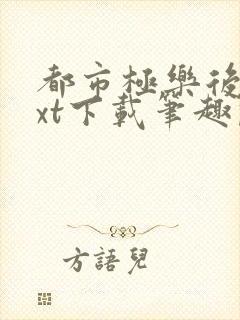 都市極樂後
xt下載筆趣
方語兒